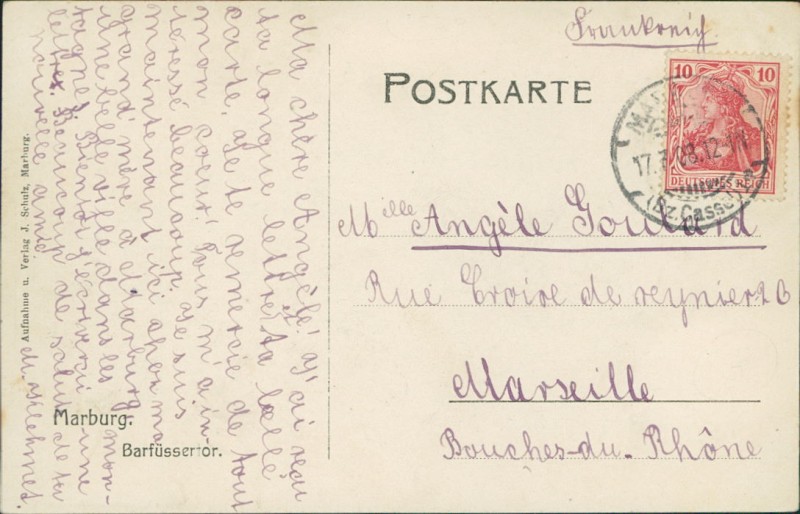 Frankreich
POSTKARTE
10 10
DEUTSCHES REICH
MAR
17.7.08.12-1N
(Bz.Cassel)
Mlle Angèle Goulard
Rue Croix de reynier 26
Marseille
Bouches-du-Rhône
Ma chère Angèle! J'ai reçu
ta longue lettre et ta belle
carte. Je te remercie de tout
mon coeur! Tous m'a in-
téressé beaucoup. Je suis
maintenant ici chez ma
grand'mère à Marburg,
une belle ville dans les mon-
tagnes. Bientôt j'écrirai une
lettre. Beaucoup de saluts de ta
nouvelle amie
M. Wilhelmet.
Marburg.
Barfüssertor.
Aufnahme u. Verlag J. Schulz, Marburg.